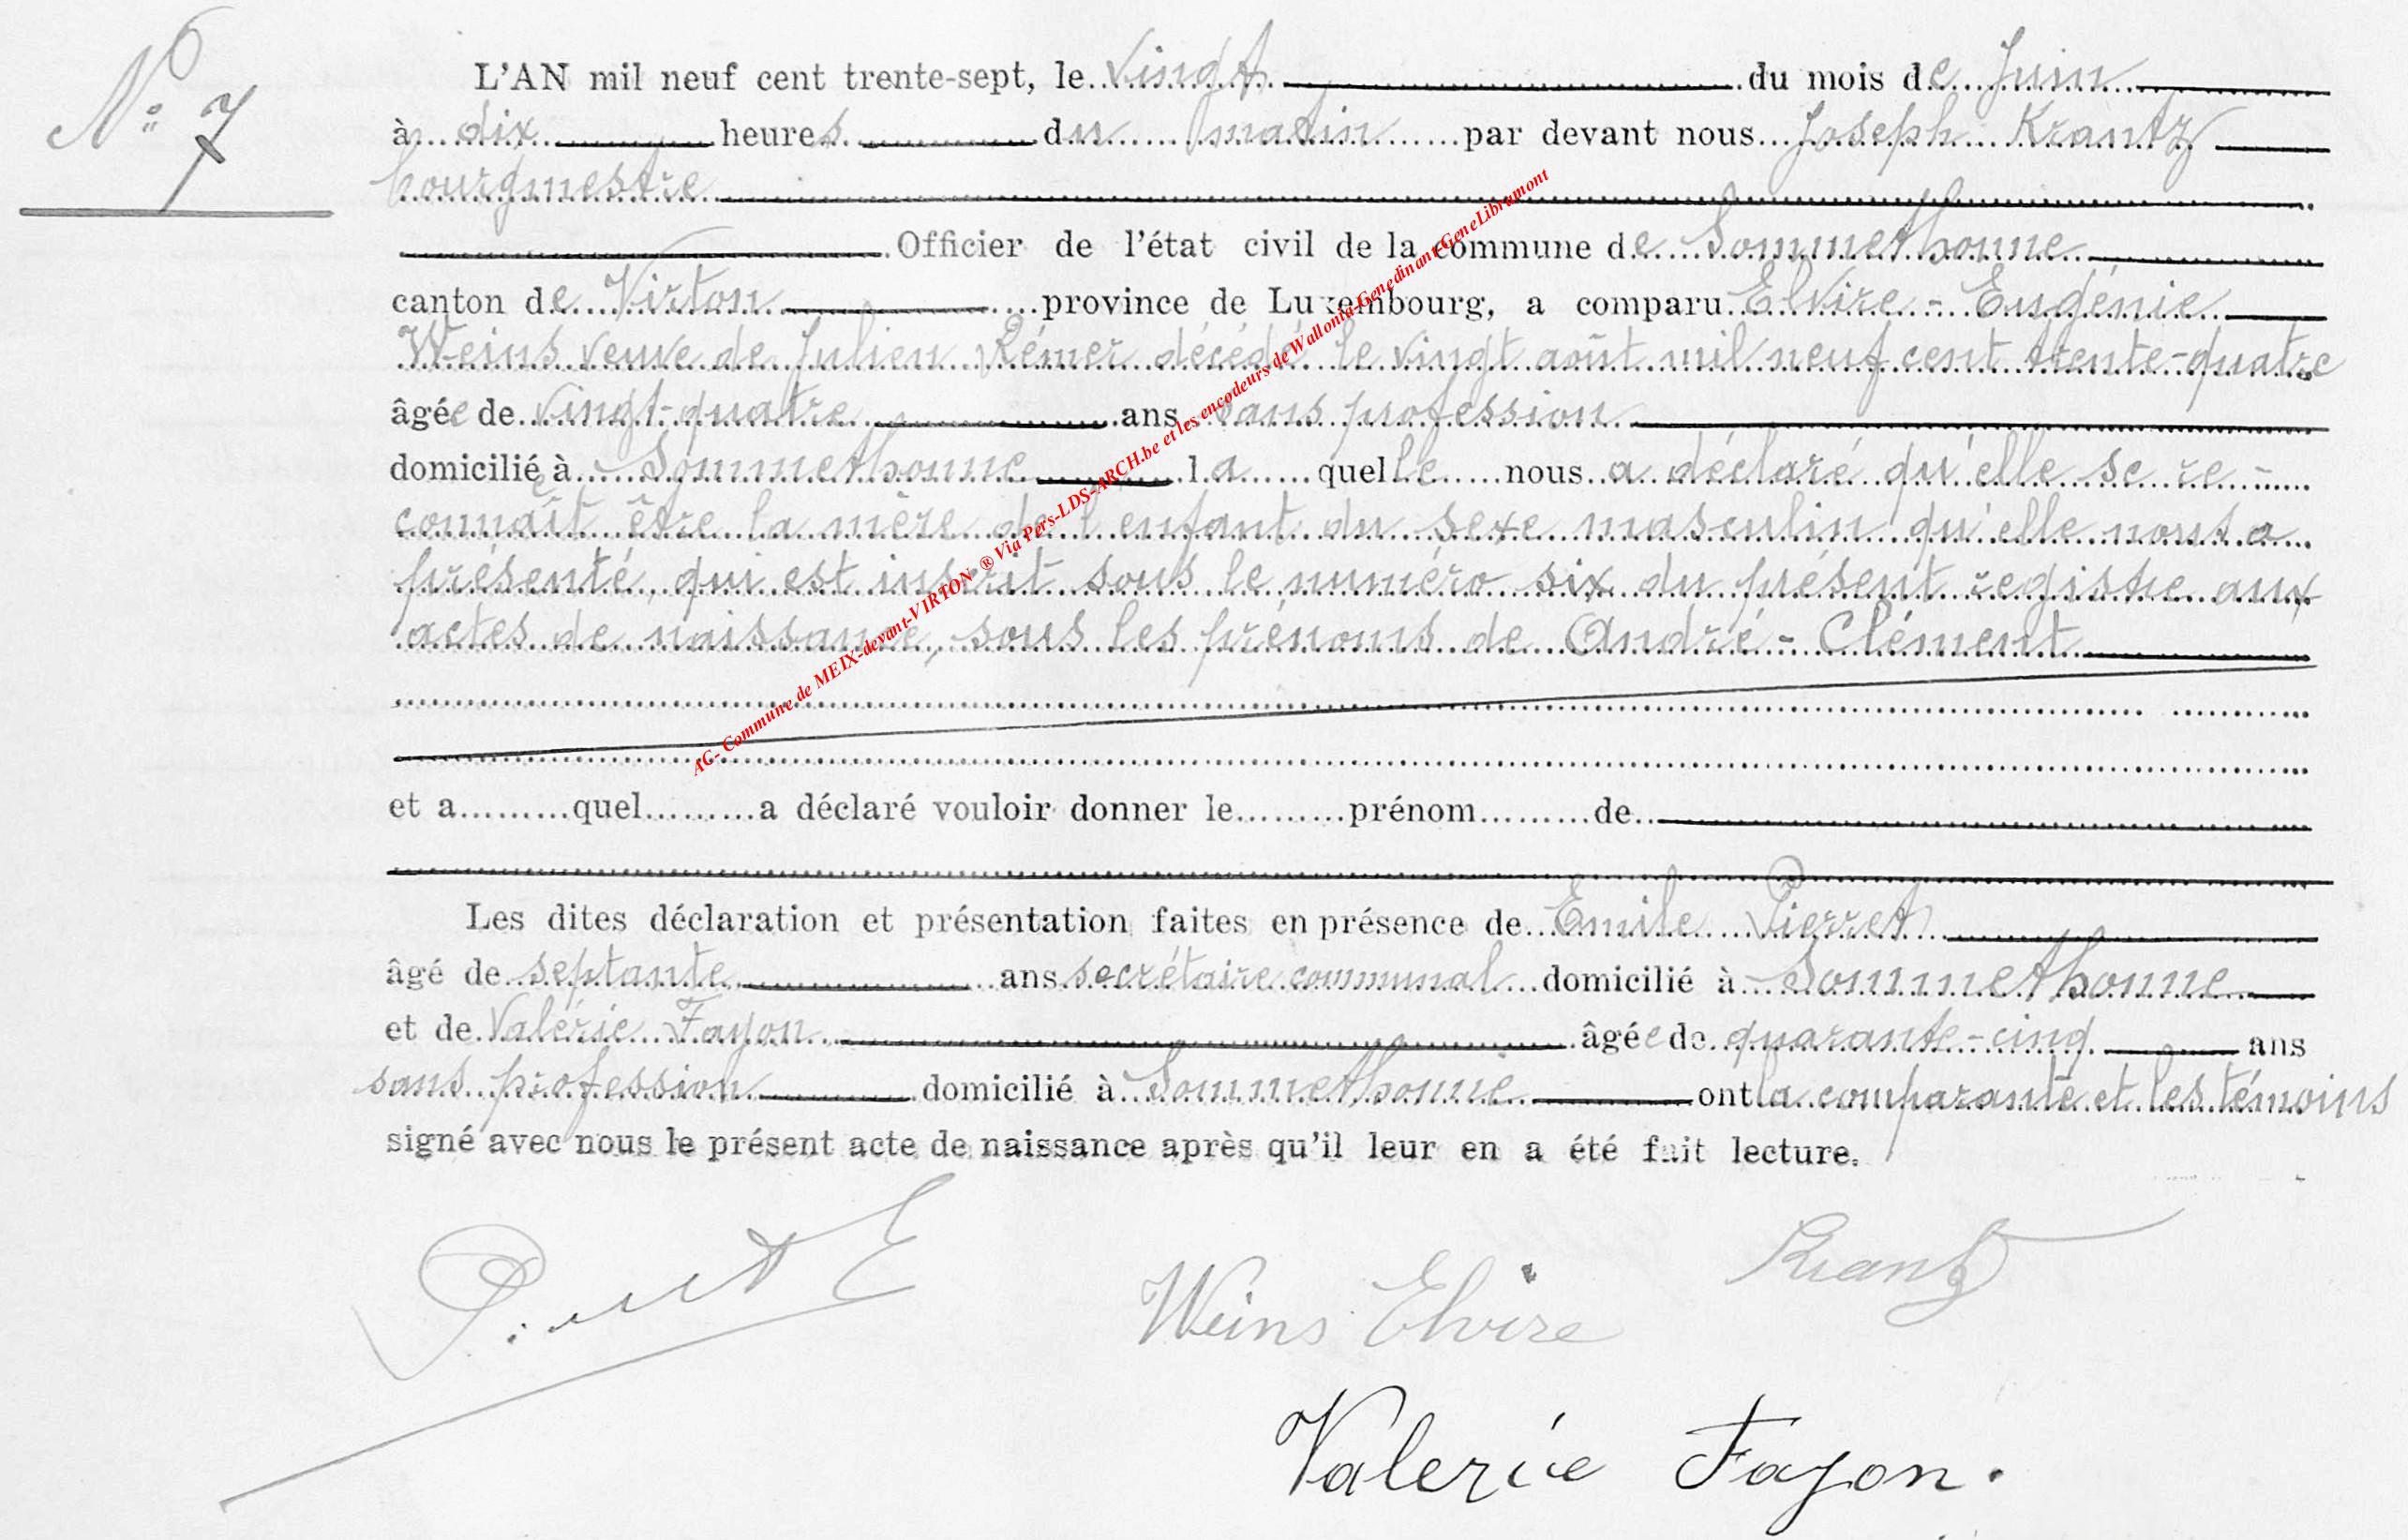 N° 7
L'AN mil neuf cent trente-sept, le vingt du mois de Juin
à dix heures du matin par devant nous Joseph Krantz
bourgmestre
Officier de l'état civil de la commune de Sommethonne
canton de Virton province de Luxembourg, a comparu Elvire - Eugénie
Weins veuve de Julien Rémer décédé le vingt août mil neuf cent trente-quatre
âgée de vingt-quatre ans sans profession
domiciliée à Sommethonne laquelle nous a déclaré qu'elle se re-
connaît être la mère de l'enfant du sexe masculin qu'elle nous a
présenté, qui est inscrit sous le numéro six du présent registre aux
actes de naissance, sous les prénoms de André - Clément
et a quel a déclaré vouloir donner le prénom de
Les dites déclaration et présentation faites en présence de Emile Pierret
âgé de septante ans secrétaire communal domicilié à Sommethonne
et de Valérie Fayon âgée de quarante-cinq ans
sans profession domicilié à Sommethonne ont la comparante et les témoins
signé avec nous le présent acte de naissance après qu'il leur en a été fait lecture.
Pierret E
Krantz
Weins Elvire
Valerie Fayon.
AC- Commune de MEIX-devant-VIRTON ® Via Pers-LDS-ARCH.be et les encodeurs de Wallonia-Genedinant-GeneLibramont